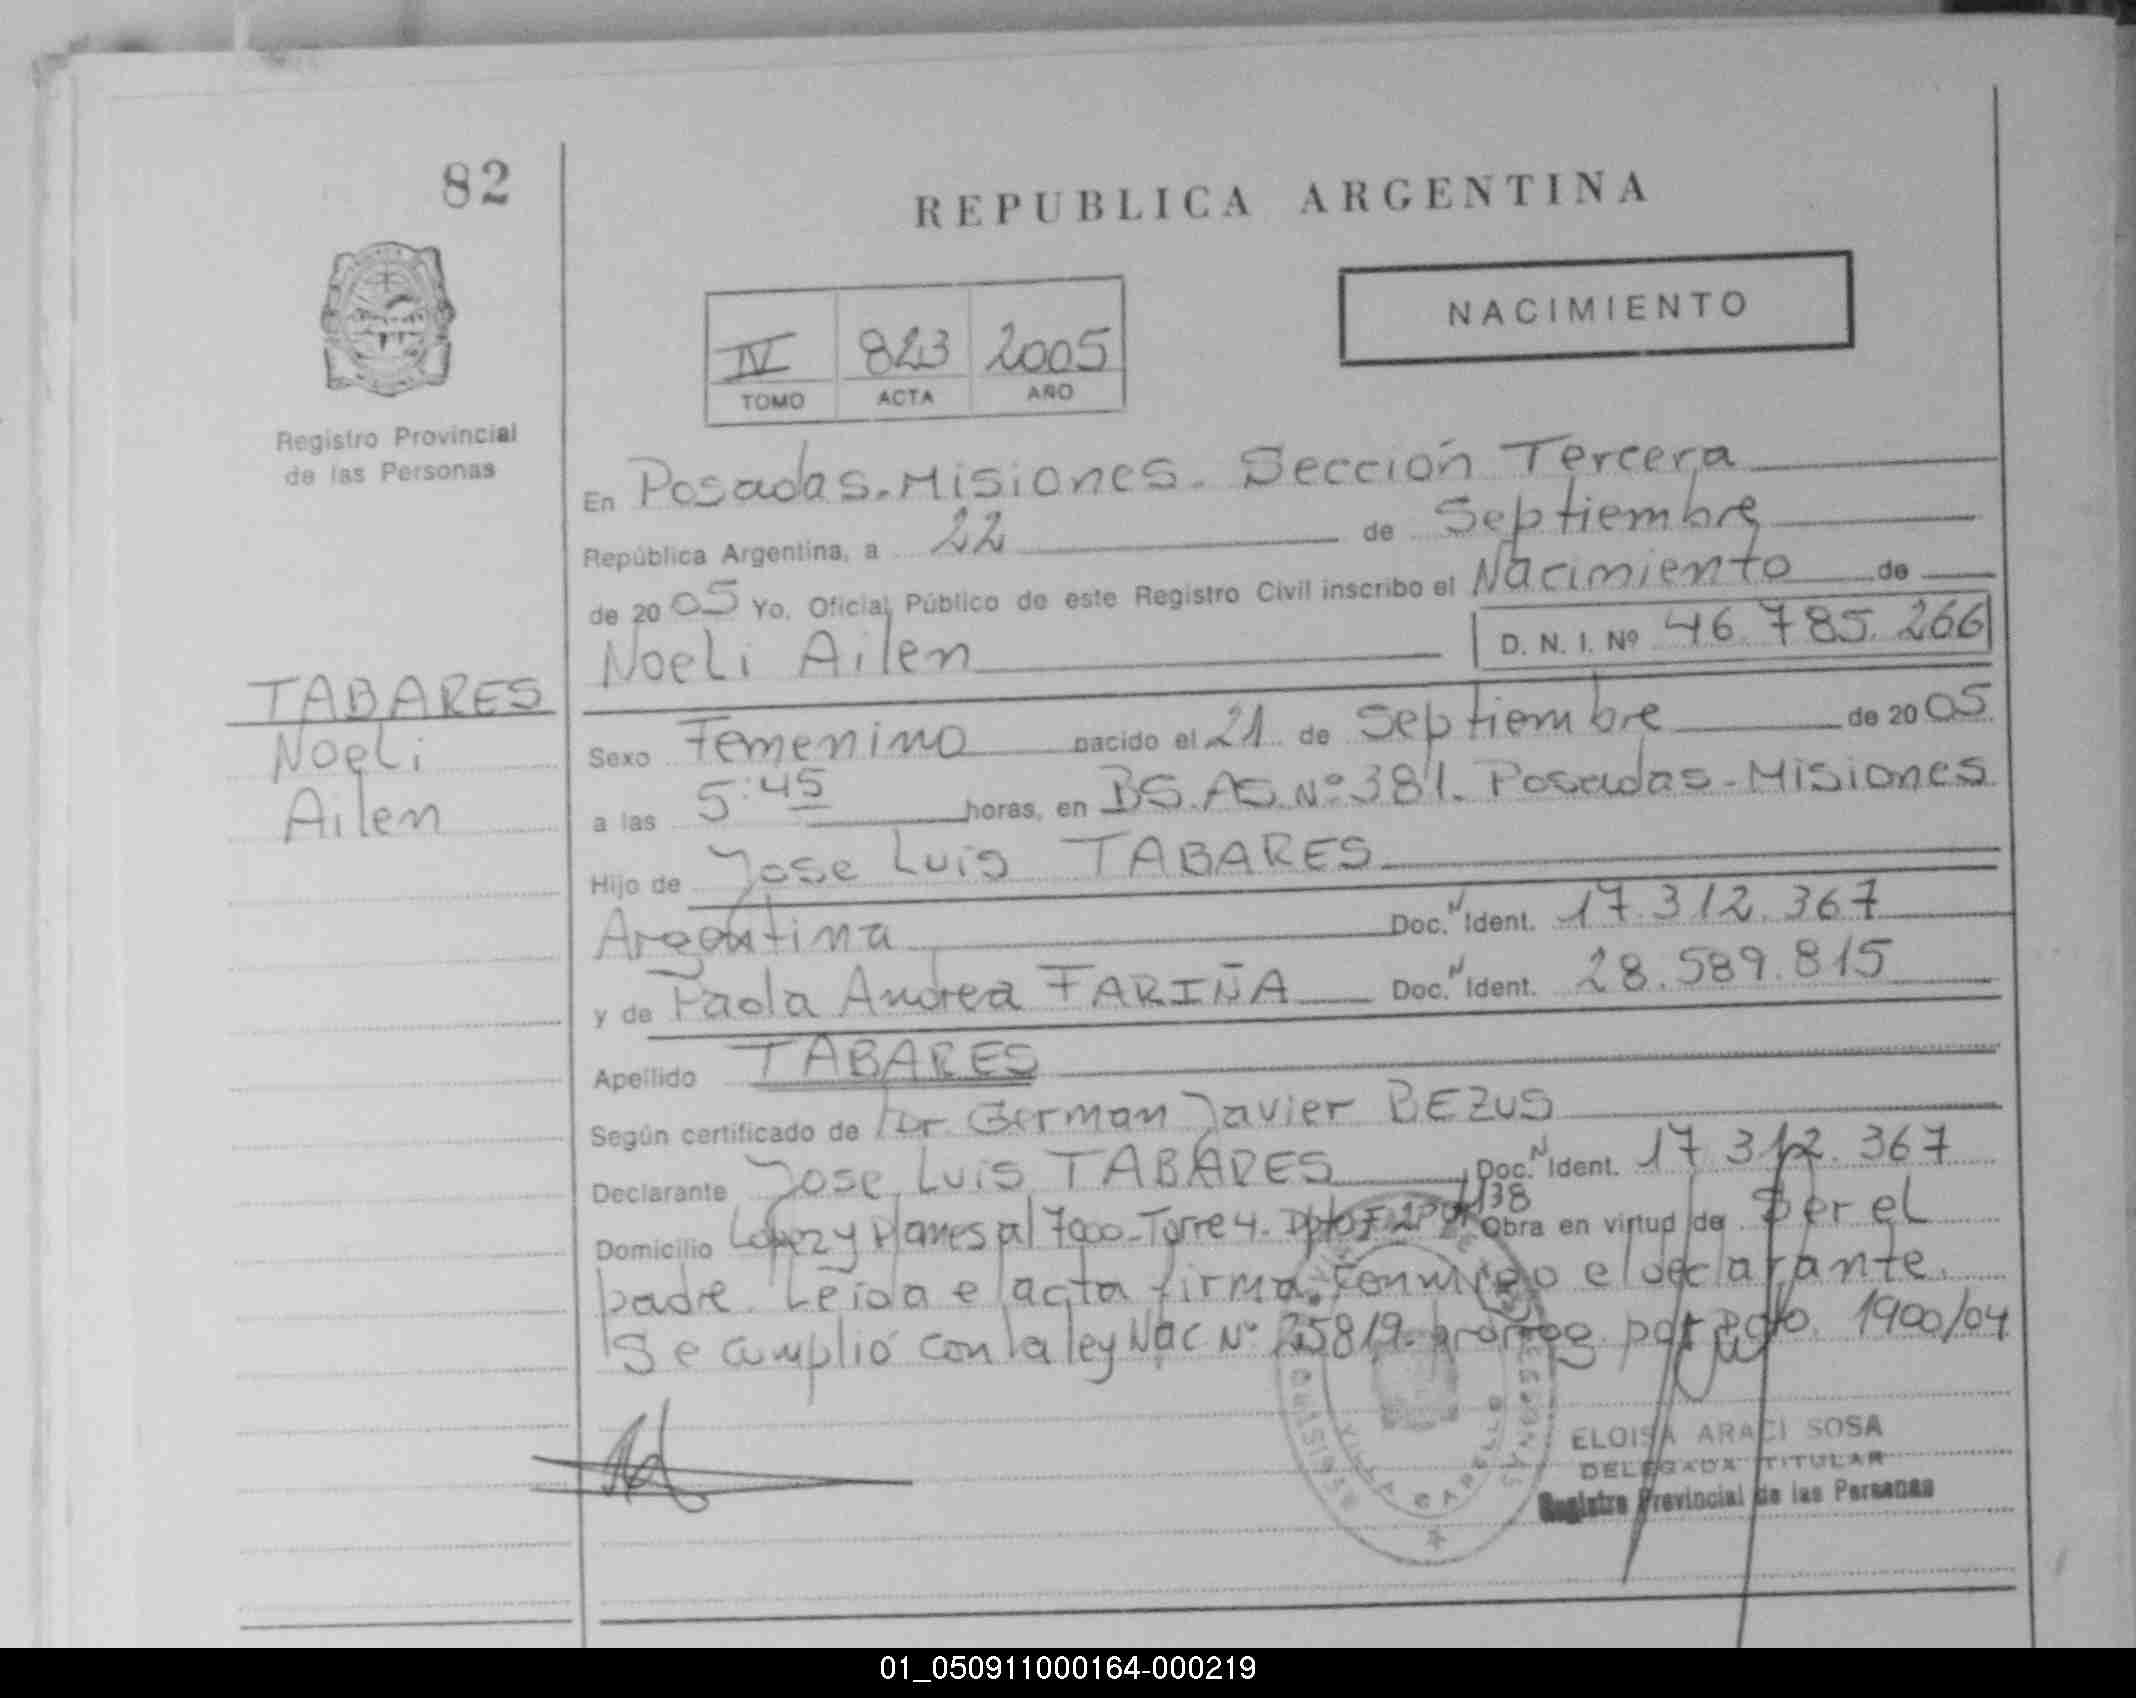 82
REPUBLICA ARGENTINA
NACIMIENTO
IV 823 2005
TOMO ACTA AÑO
Registro Provincial
de las Personas
En Posadas-Misiones. Sección Tercera
República Argentina, a 22 de Septiembre
de 2005 Yo, Oficial Público de este Registro Civil inscribo el Nacimiento de
Noeli Ailen D. N. I. Nº 46.785.266
TABARES
Noeli
Ailen
Sexo Femenino nacido el 21 de Septiembre de 2005
a las 5:45 horas, en BS.AS. Nº 381. Posadas-Misiones
Hijo de Jose Luis TABARES
Argentina Doc. N Ident. 17.312.367
y de Paola Andrea FARIÑA Doc. N Ident. 28.589.815
Apellido TABARES
Según certificado de Dr. German Javier BEZUS
Declarante Jose Luis TABARES Doc. N Ident. 17.312.367
Domicilio Lopez y Planes al 7000-Torre 4. Dpto F 138 Obra en virtud de Ser el
padre. Leida el acta firma conmigo el declarante.
Se cumplió con la ley Nac Nº 25819. por 1900/04
VILLA CABELLO
MISIONES
ELOISA ARACI SOSA
DELEGADA TITULAR
Registro Provincial de las Personas
01_050911000164-000219